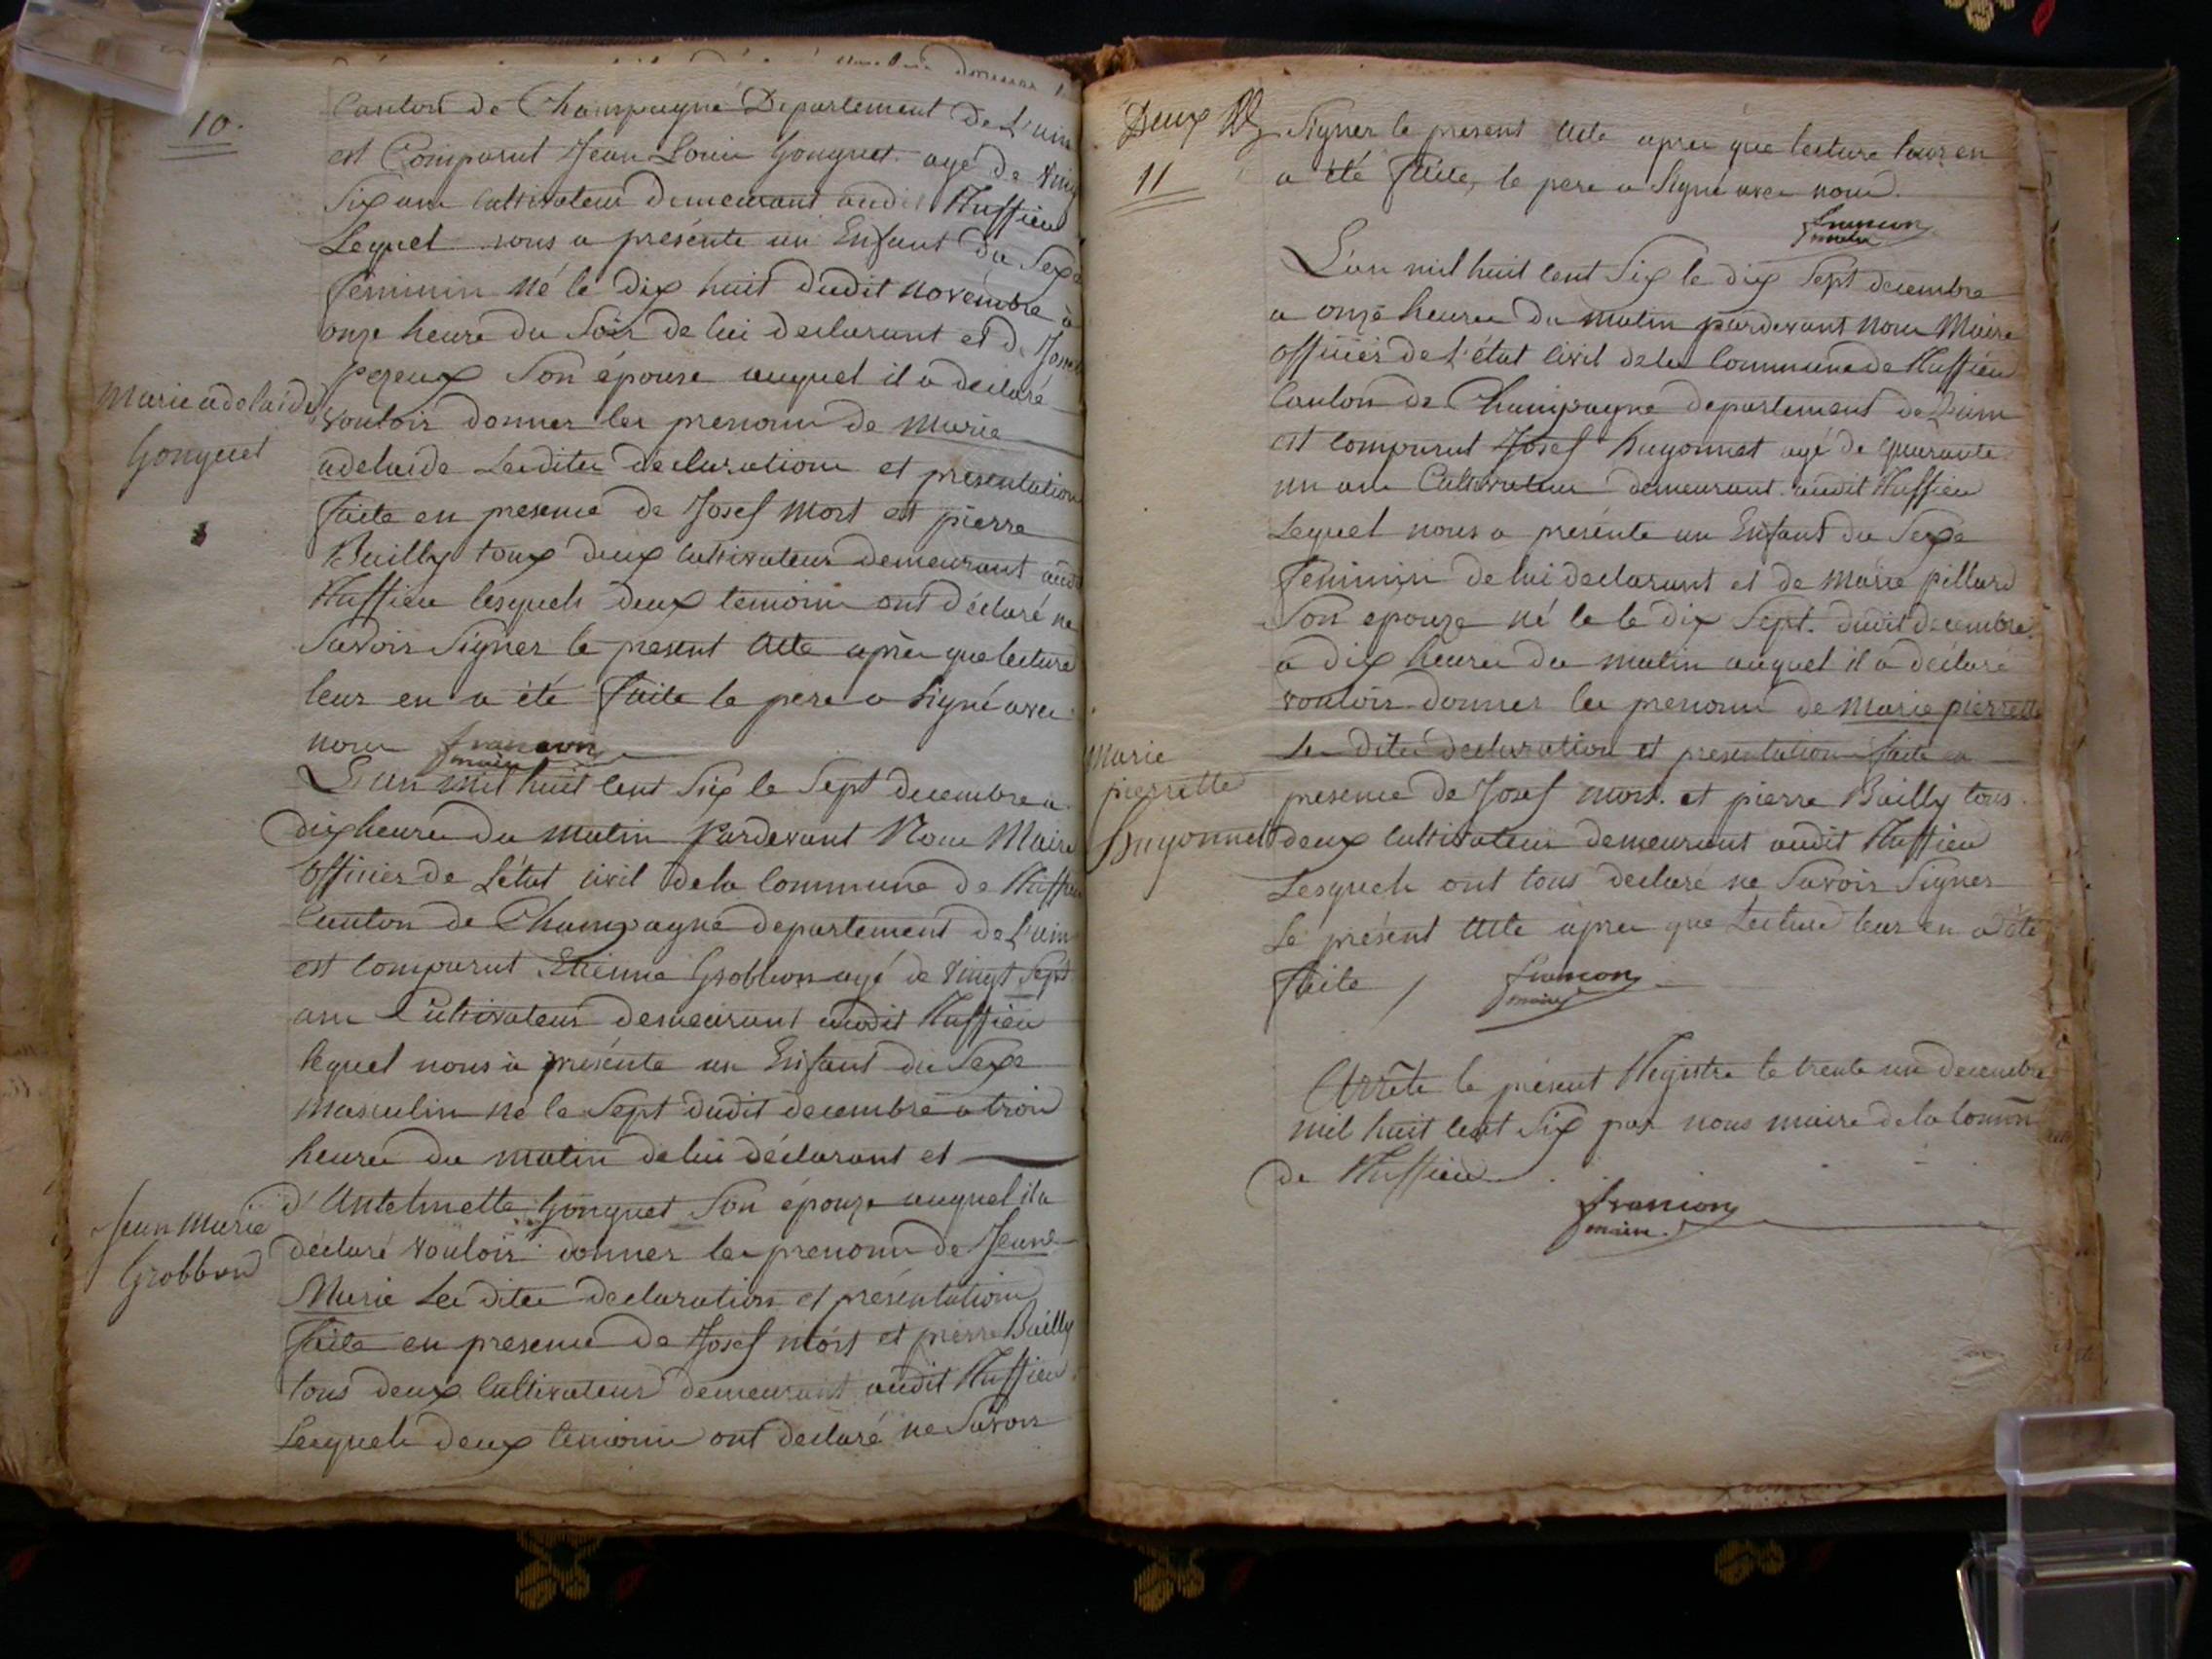 10.
Canton de Champagne Departement de L'ain
est Comparut Jean Louis Gonguet agé de Vingt
Six ans Cultivateur Demeurant audit Huffieu
Lequel nous a présenté un Enfant du Sexe
feminin né le dix huit dudit novembre à
onze heure du Soir de lui declarant et de
pezeux Son épouse auquel il a declaré
Marie adelaide
vouloir donner les prenoms de Marie
Gonguet
adelaide Lesdites déclarations et presentation
faite en presence de Josef Mort et pierre
Bailly toux deux Cultivateur demeurant audit
Huffieu lesquels deux temoins ont déclaré ne
Savoir Signer le present Acte après que lecture
leur en a été faite le pere a Signé avec
nous francon
maire
L'an mil huit cent Six le Sept decembre a
dix heures du matin Pardevant Nous Maire
Officier de L'état civil de la Commune de Huffieu
Canton de Champagne departement de L'ain
est comparut Etienne Grobbon agé de Vingt Sept
ans Cultivateur demeurant audit Huffieu
lequel nous à présenté un Enfant du Sexe
masculin né le Sept dudit decembre a trois
heures du matin de lui déclarant et
d'Antelmette Gonguet Son épouze auquel il a
Jean Marie
déclaré vouloir donner les prenoms de Jeane
Grobbon
Marie Les dites declaration et présentation
faite en presence de Josef mort et pierre Bailly
tous deux Cultivateur demeurant audit Huffieu
Lesquels deux temoins ont declaré ne Savoir
Deux
11
Signer le present Acte apres que lecture leur en
a été faite, le pere a Signé avec nous.
francon
maire
L'an mil huit cent Six le dix Sept decembre
a onze heures du matin pardevant nous Maire
Officier de L'état Civil de la Commune de Huffieu
Canton de Champagne departement de L'ain
est comparut Josef huyonnet agé de quarante
un ans Cultivateur demeurant audit Huffieu
Lequel nous a présenté un Enfant du Sexe
feminin de lui declarant et de Marie pillard
Son epouze né le le dix Sept. dudit decembre
a dix heures du matin auquel il a déclaré
vouloir donner les prenoms de Marie pierrette
Marie
pierrette
huyonnet
Les dites declaration et presentation faite en
presence de Josef mort. et pierre Bailly tous
deux Cultivateur demeurant audit Huffieu
Lesquels ont tous declaré ne Savoir Signer
Le présent Acte apres que Lecture leur en a été
faite / francon
maire
Arrêté le présent Registre le trente un decembre
mil huit cent Six par nous maire de la Comm
de Huffieu
francon
maire.